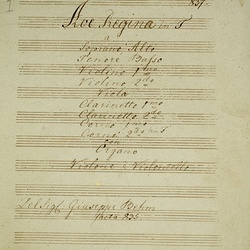 Ave Regina in F
a
Soprano, Alto
Tenore Basso
Violino 1mo
Violino 2do
Viola
Clarinetto 1mo
Clarinetto 2do
Corno 1mo
Corno 2do in F
Organo
Violone e Violoncello
Del Sigr. Giuseppe Behm